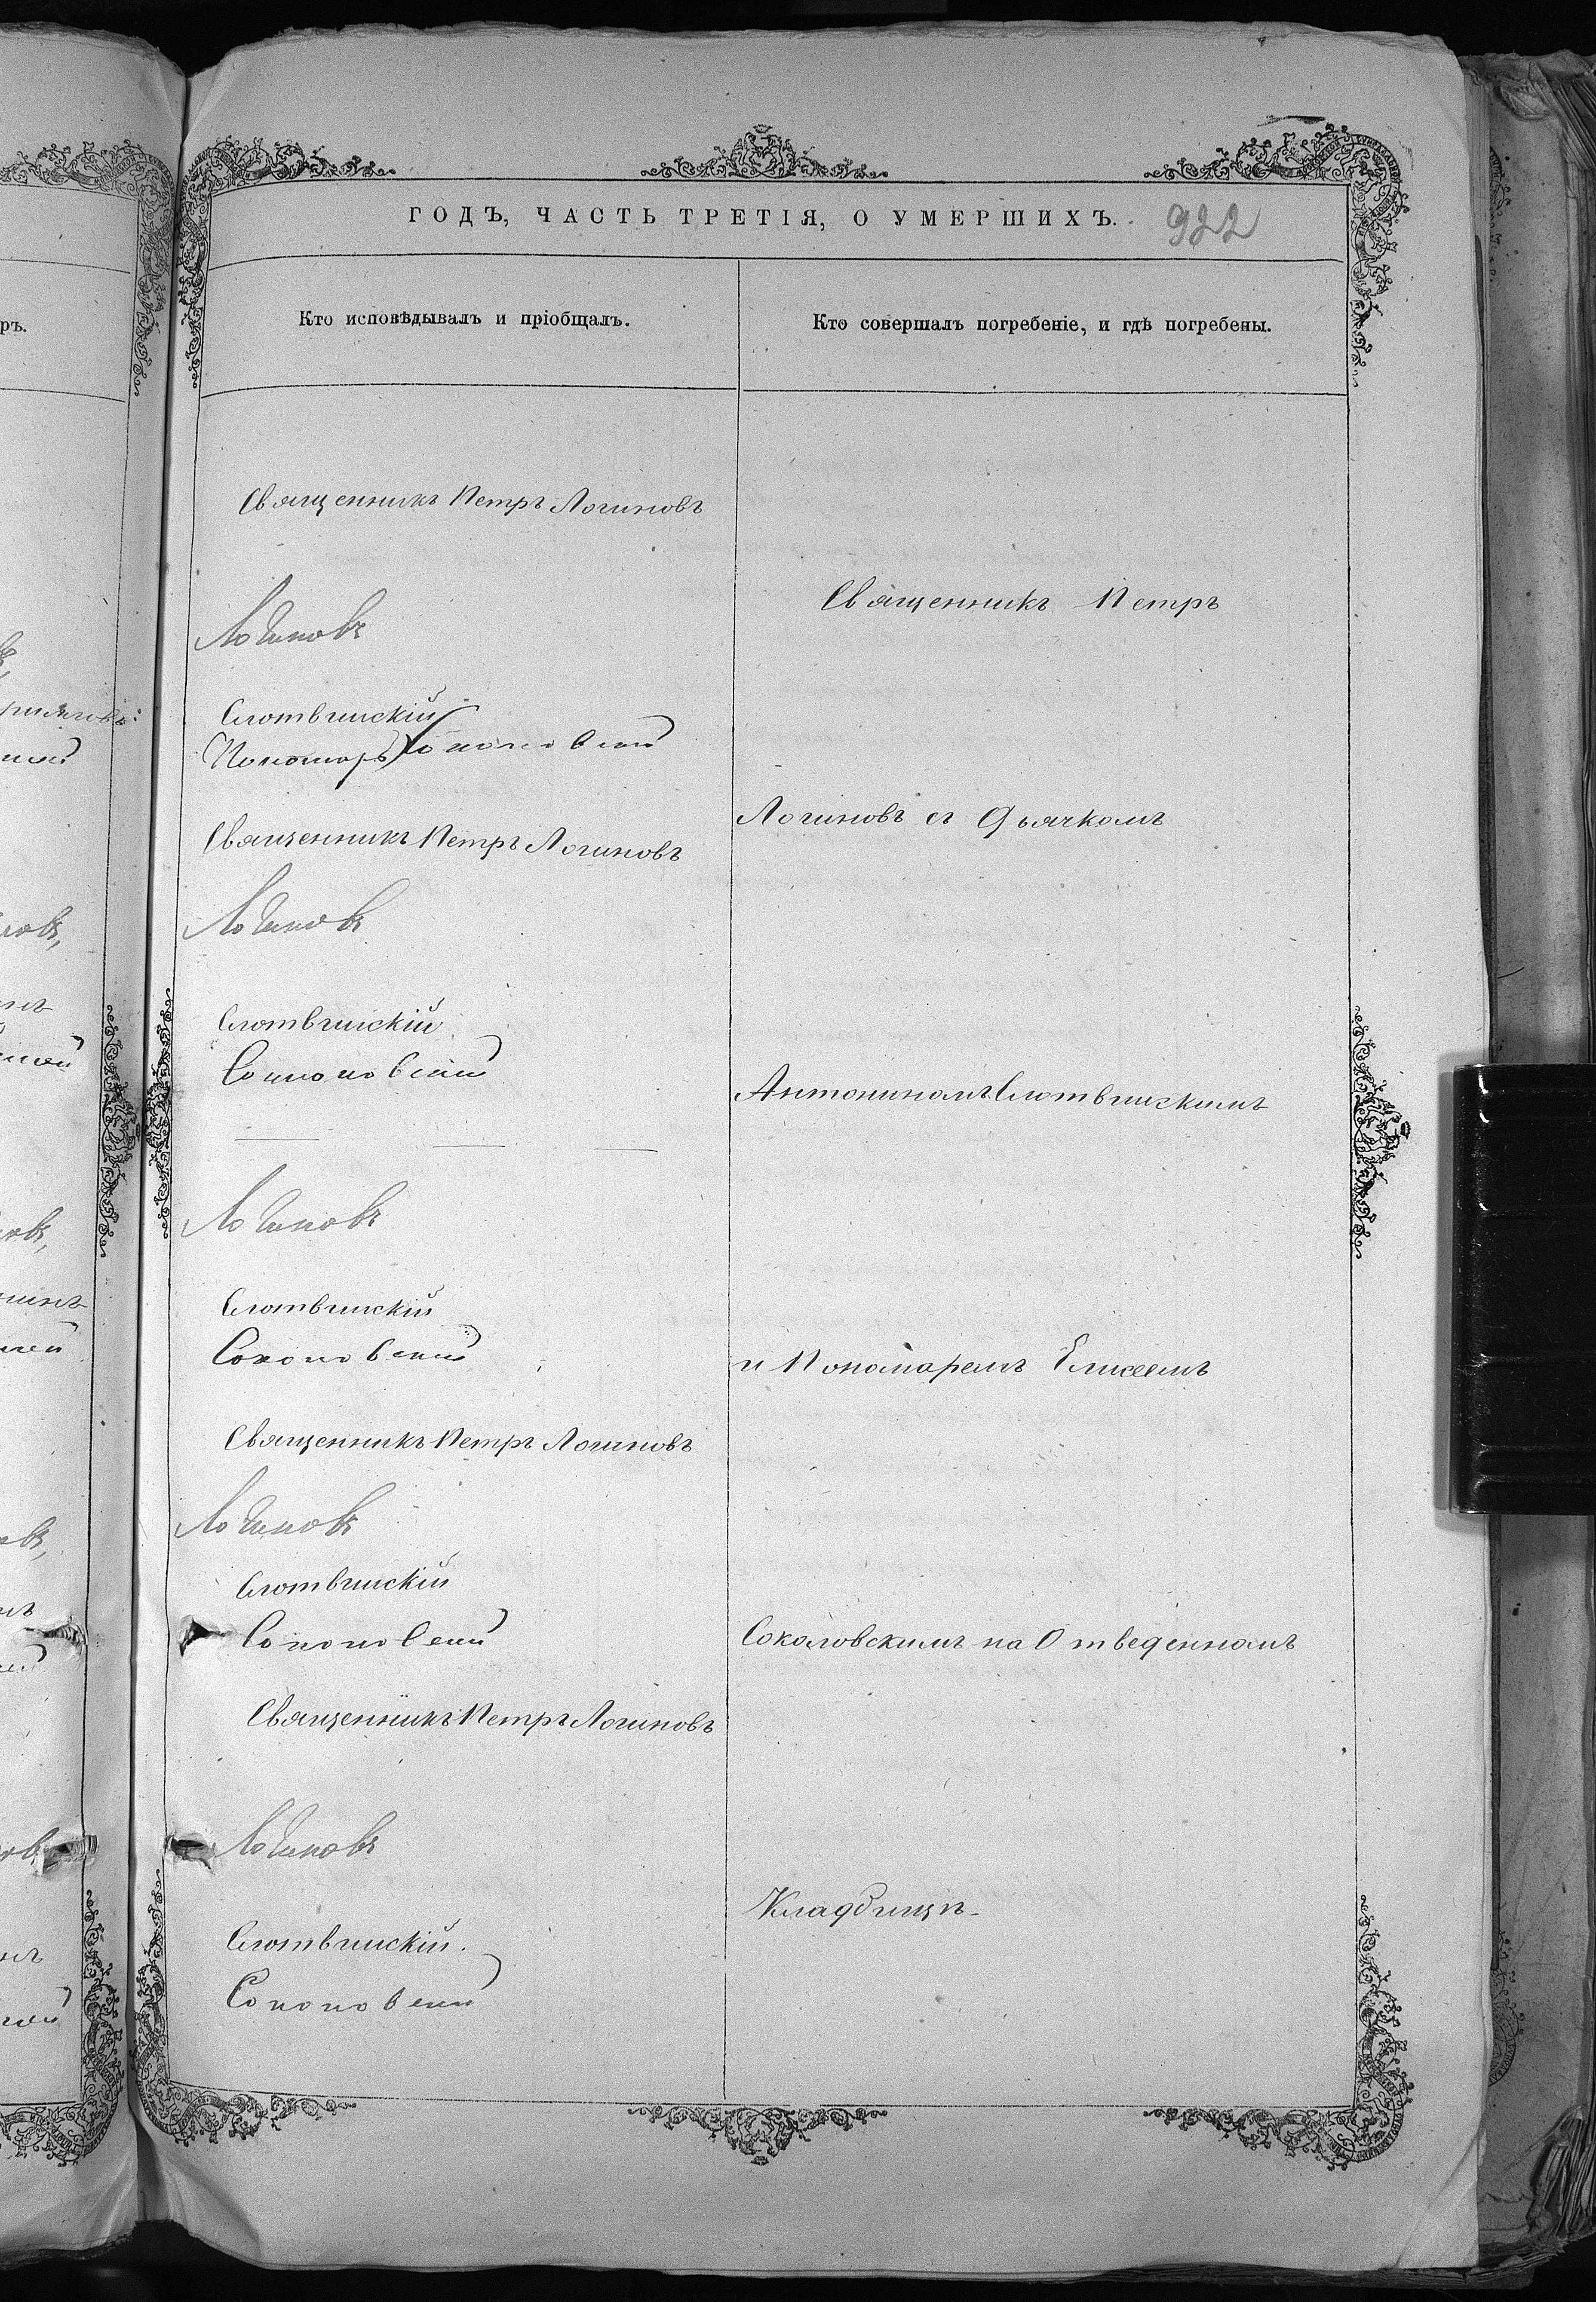 ГОДЪ, ЧАСТЬ ТРЕТІЯ, О УМЕРШИХЪ. 922
Кто исповѣдывалъ и пріобщалъ.
Кто совершалъ погребеніе, и гдѣ погребены.
Священникъ Петръ Логиновъ
Логиновъ
Слотвинскій
Пономарь Соколовскій
Священникъ Петръ Логиновъ
Логиновъ
Слотвинскій
Соколовскій
Логиновъ
Слотвинскій
Соколовскій
Священникъ Петръ Логиновъ
Логиновъ
Слотвинскій
Соколовскій
Священникъ Петръ Логиновъ
Логиновъ
Слотвинскій.
Соколовскій
Священникъ Петръ
Логиновъ съ Дьячкомъ
Антониномъ Слотвинскимъ
и Пономаремъ Елисеемъ
Соколовскимъ на Отведенномъ
Кладбищѣ